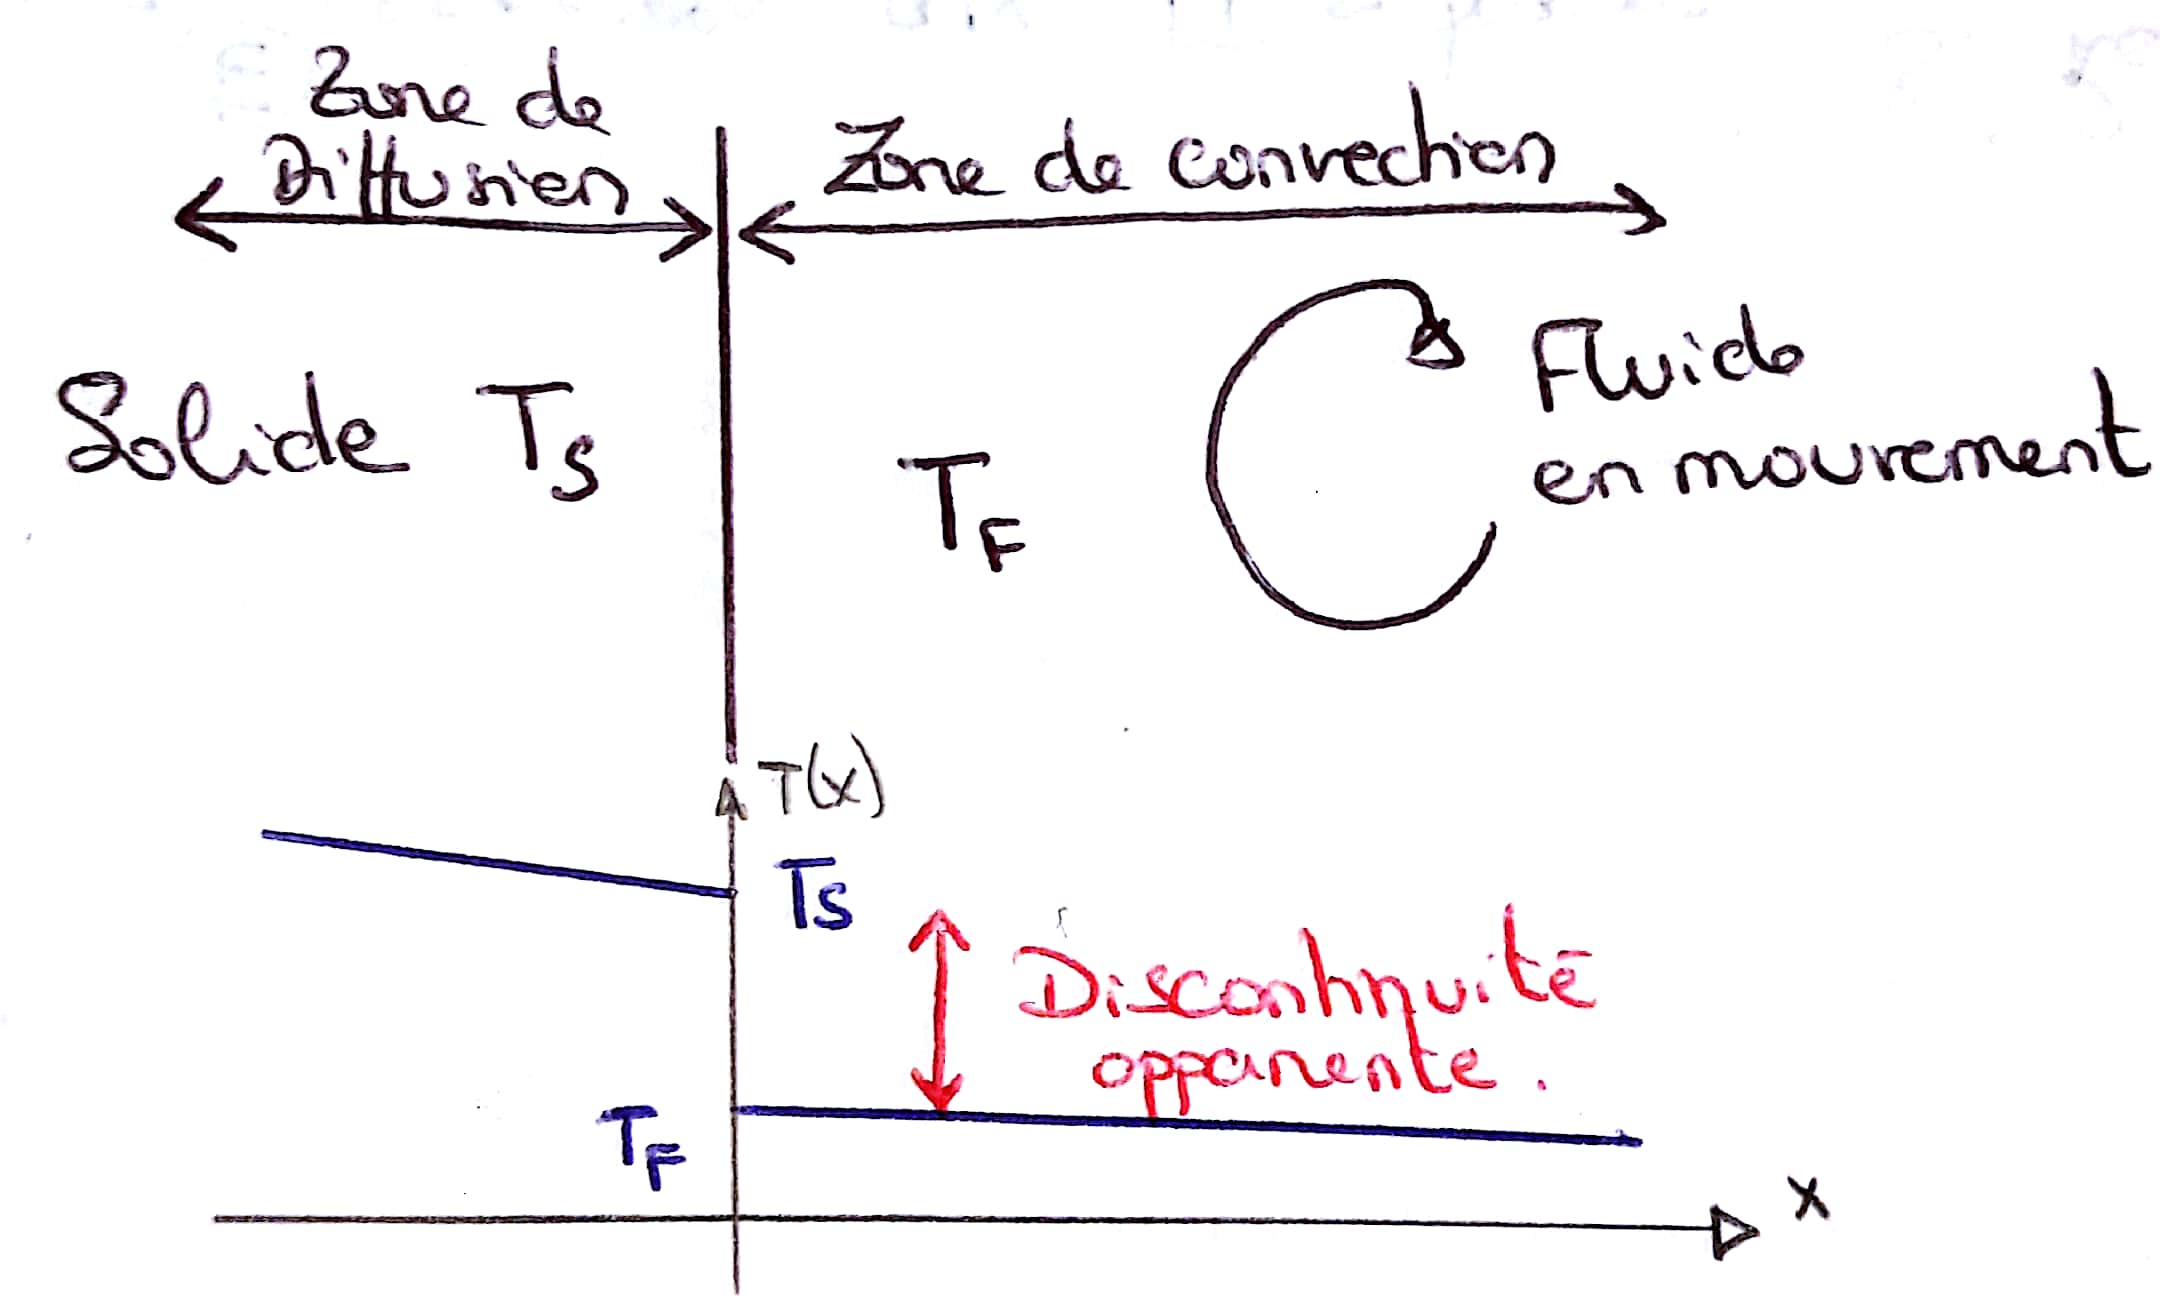 Zone de
Diffusion
Zone de convection
Solide T_S
T_F
Fluide
en mouvement
T(x)
Ts
Discontinuité
apparente.
T_F
x